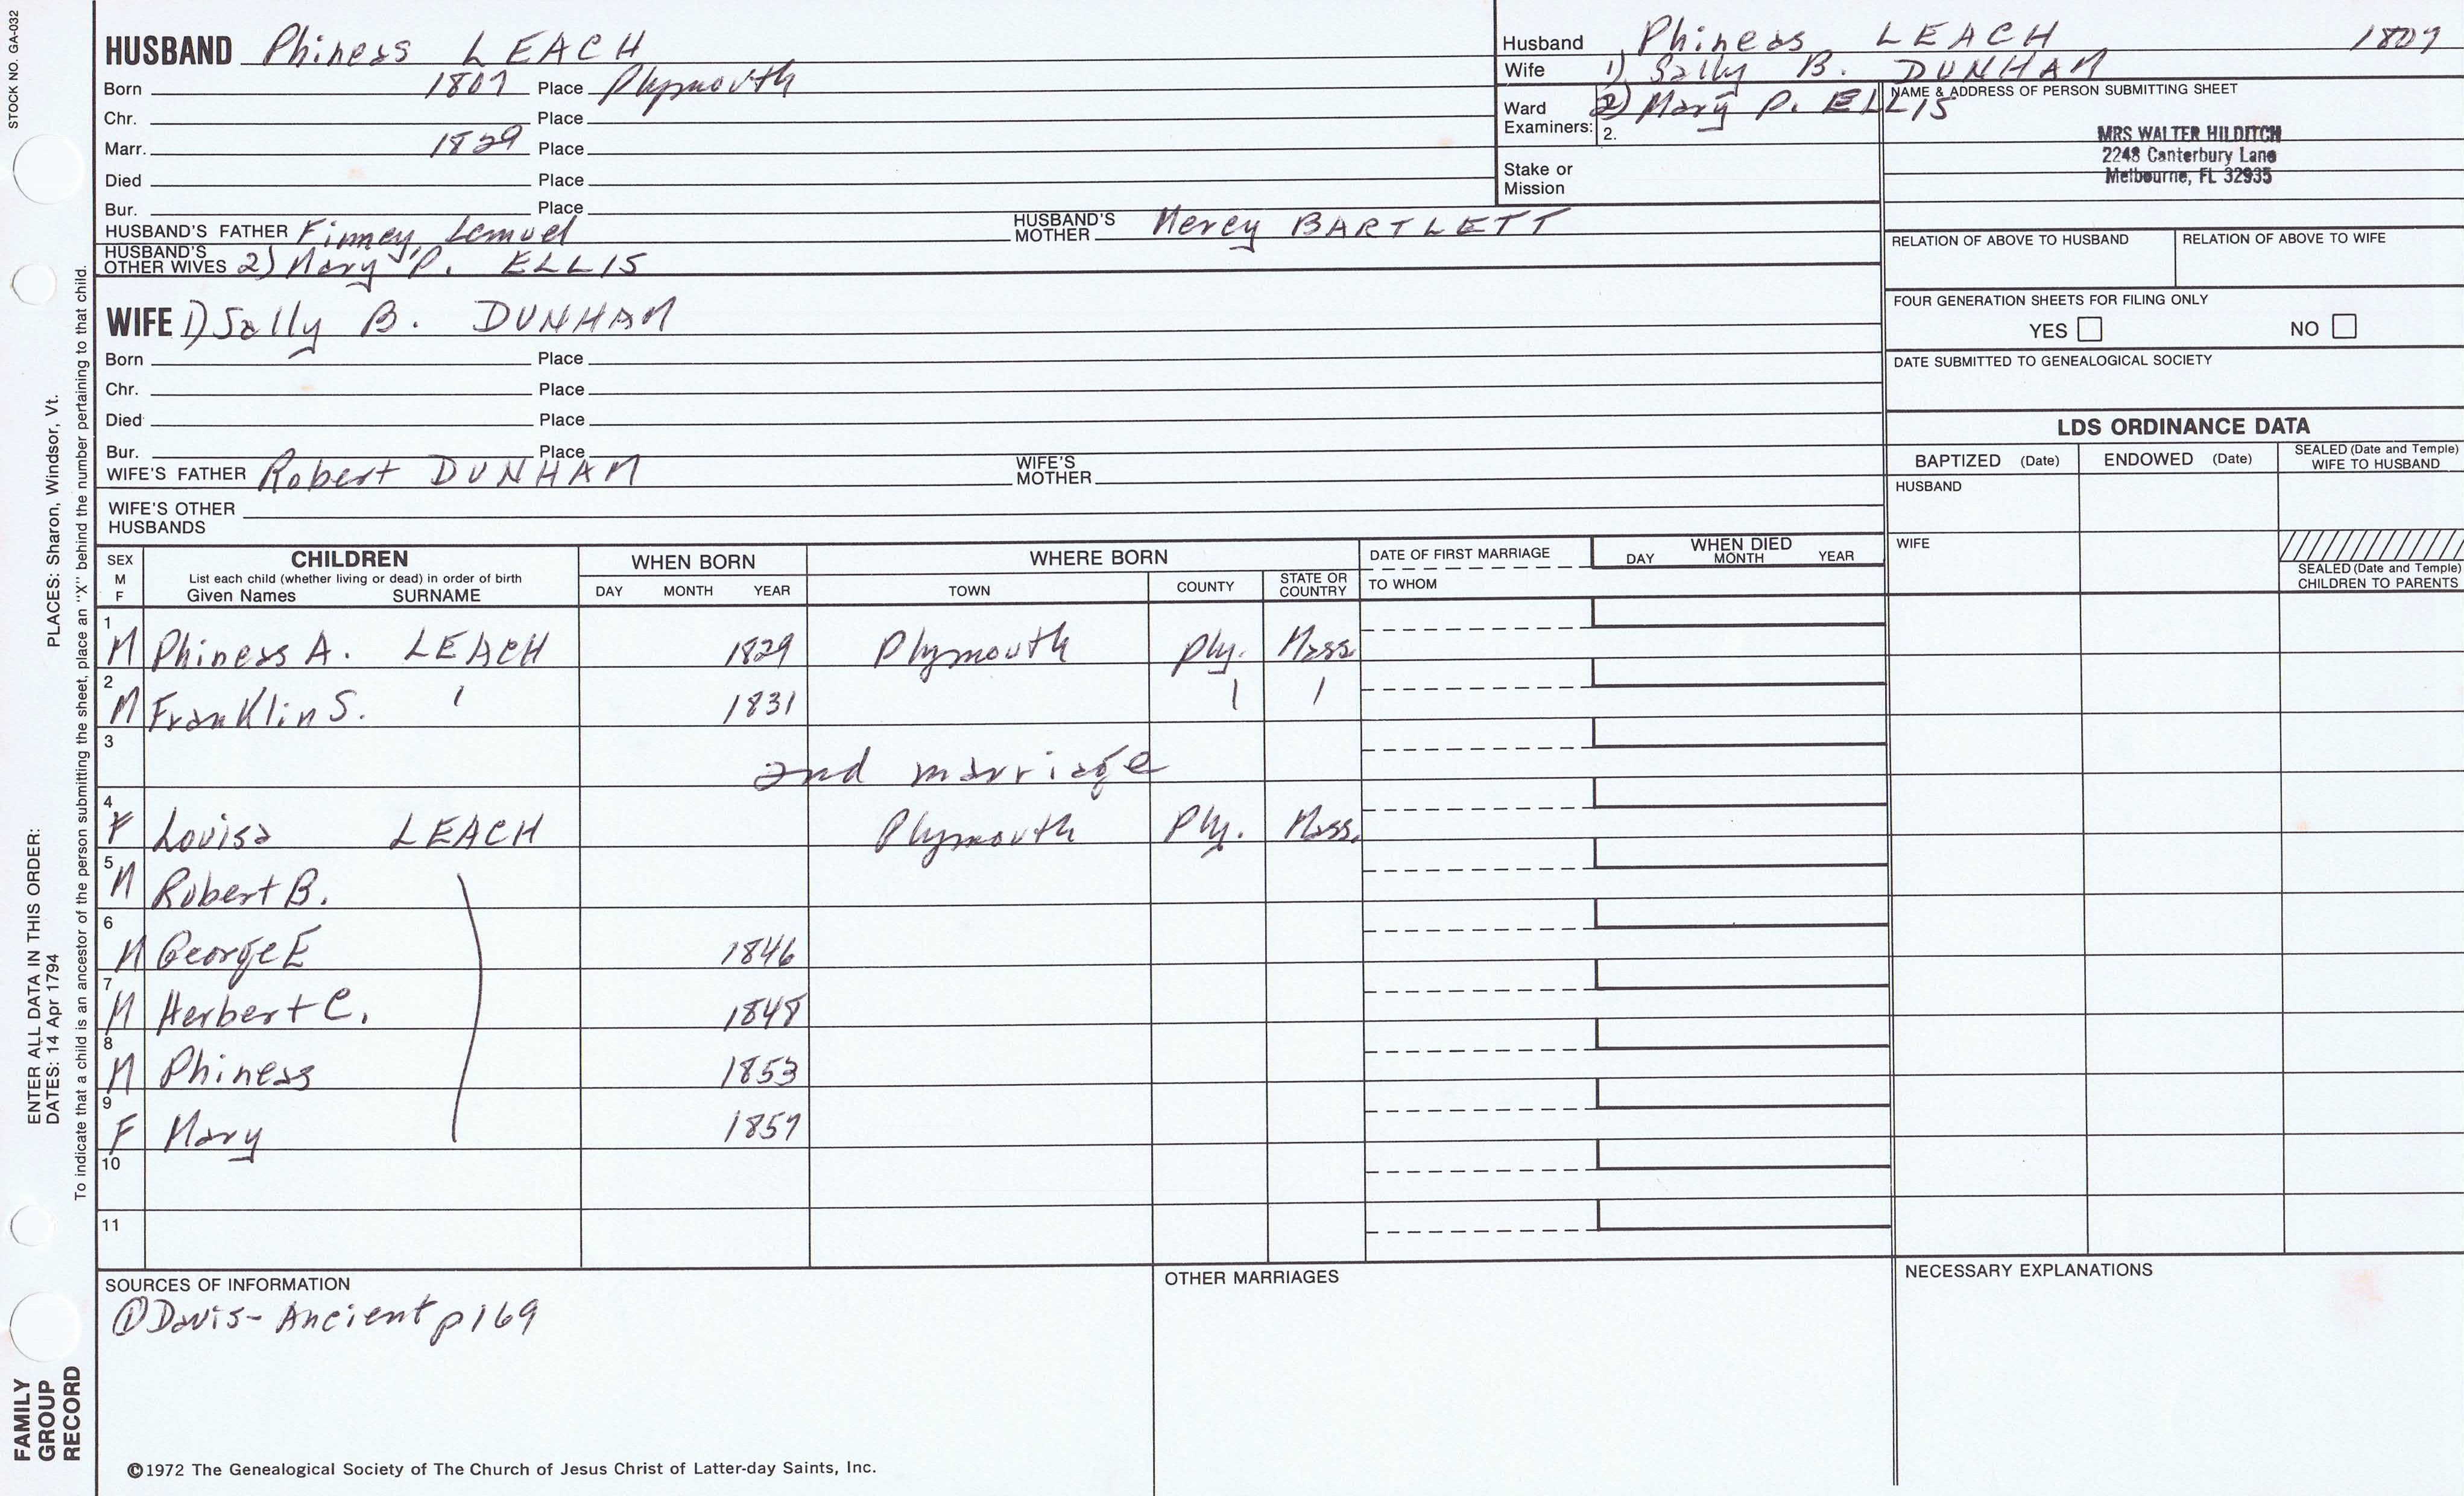 STOCK NO. GA-032
HUSBAND Phineas LEACH
Born 1807 Place Plymouth
Chr. Place
Marr. 1829 Place
Died Place
Bur. Place
HUSBAND'S FATHER Finney, Lemuel HUSBAND'S MOTHER Mercy BARTLETT
HUSBAND'S OTHER WIVES 2) Mary P. ELLIS
Husband Phineas LEACH 1807
Wife 1) Sally B. DUNHAM
Ward 2) Mary P. ELLIS
Examiners: 2.
Stake or
Mission
NAME & ADDRESS OF PERSON SUBMITTING SHEET
MRS WALTER HILDITCH
2248 Canterbury Lane
Melbourne, FL 32935
RELATION OF ABOVE TO HUSBAND RELATION OF ABOVE TO WIFE
FOUR GENERATION SHEETS FOR FILING ONLY
YES NO
DATE SUBMITTED TO GENEALOGICAL SOCIETY
WIFE 1) Sally B. DUNHAM
Born Place
Chr. Place
Died Place
Bur. Place
WIFE'S FATHER Robert DUNHAM WIFE'S MOTHER
WIFE'S OTHER
HUSBANDS
LDS ORDINANCE DATA
BAPTIZED (Date) ENDOWED (Date) SEALED (Date and Temple) WIFE TO HUSBAND
HUSBAND
WIFE
SEALED (Date and Temple)
CHILDREN TO PARENTS
SEX M F CHILDREN WHEN BORN WHERE BORN DATE OF FIRST MARRIAGE WHEN DIED
List each child (whether living or dead) in order of birth
Given Names SURNAME DAY MONTH YEAR TOWN COUNTY STATE OR COUNTRY TO WHOM DAY MONTH YEAR
1 M Phineas A. LEACH 1829 Plymouth Ply. Mass.
2 M Franklin S. ' 1831 | |
3 2nd marriage
4 F Louisa LEACH Plymouth Ply. Mass.
5 M Robert B.
6 M George E 1846
7 M Herbert C. 1848
8 M Phineas 1853
9 F Mary 1857
10
11
SOURCES OF INFORMATION
① Davis- Ancient p169
OTHER MARRIAGES
NECESSARY EXPLANATIONS
©1972 The Genealogical Society of The Church of Jesus Christ of Latter-day Saints, Inc.
FAMILY
GROUP
RECORD
ENTER ALL DATA IN THIS ORDER:
DATES: 14 Apr 1794
PLACES: Sharon, Windsor, Vt.
To indicate that a child is an ancestor of the person submitting the sheet, place an "X" behind the number pertaining to that child.